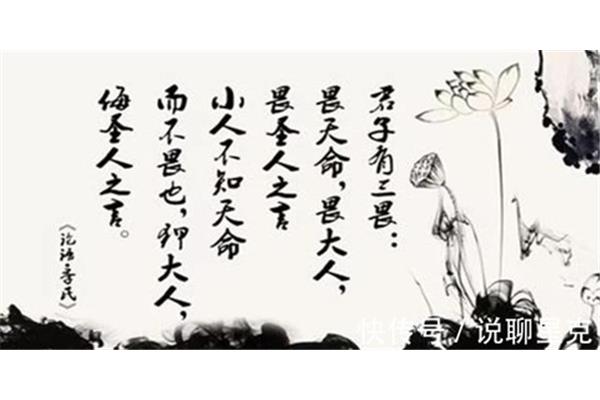 君子有三畏：
畏天命，畏大人，
畏圣人之言
小人不知天命
而不畏也，狎大人，
侮圣人之言。
《论语·季氏》
快传号／说聊星克